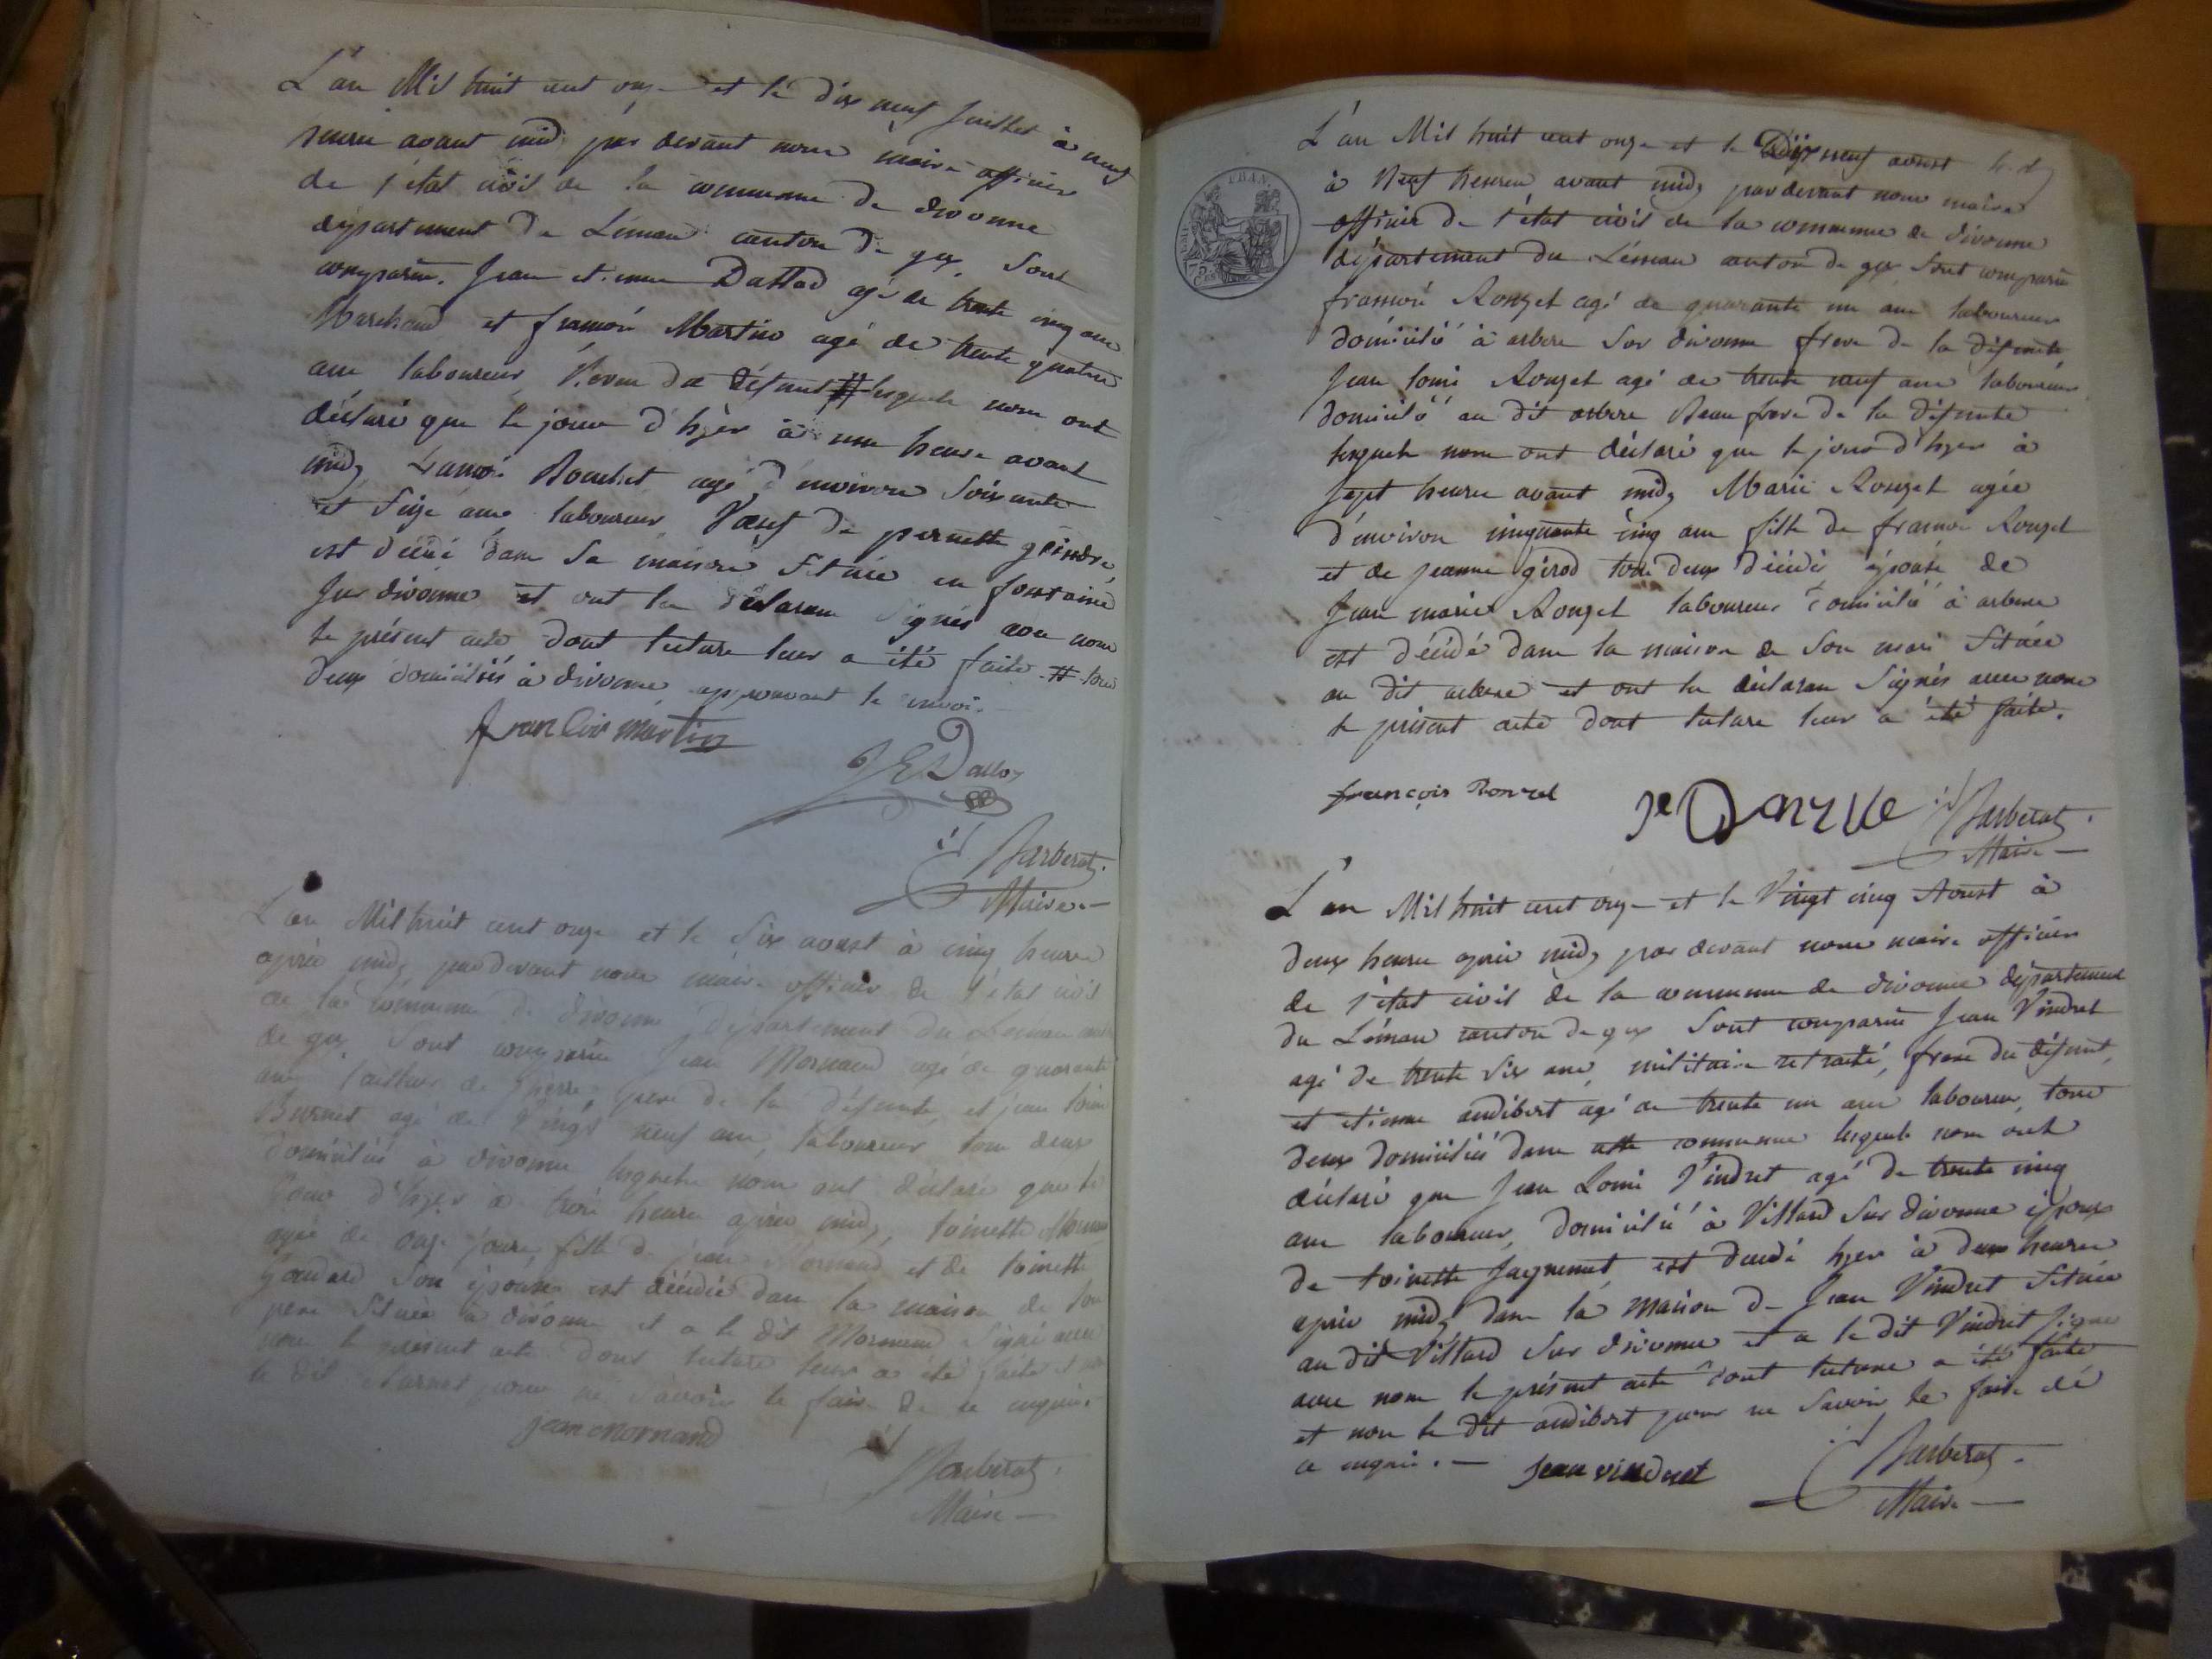 L'an Mil huit cent onze et le dix neuf Juillet à neuf
heures avant midy par devant nous maire officier
de l'état civil de la commune de divonne
département du Léman canton de gex sont
comparus Jean etienne Dallod agé de trente cinq ans
Marchand et françois Martin agé de trente quatre
ans laboureur Neveu du défunt # lesquels nous ont
déclaré que le jour d'hyer à une heure avant
midy françois Bouchet agé d'environ soixante
et seize ans laboureur Vœuf de pernette
est décédé dans sa maison située en fontaine
sur divonne et ont les déclarans signés avec nous
le présent acte dont lecture leur a été faite # tous
deux domiciliés à divonne approuvant le renvoi.
francois martin
J E Dalloz
Barberat
Maire
L'an Mil huit cent onze et le six aoust à cinq heures
après midy par devant nous maire officier de l'état civil
de la commune de divonne département du Léman canton
de gex sont comparus Jean Mornand agé de quarante
ans tailleur de pierre, pere de la défunte et jean louis
Burnet agé de Vingt neuf ans, laboureur tous deux
domiciliés à divonne lesquels nous ont déclaré que le
jour d'hyer à trois heures après midy, toinette Mornand
agée de onze jours, fille de jean Mornand et de toinette
Goudard son épouse est décédée dans la maison de son
pere située à divonne et a le dit Mornand signé avec
nous le présent acte dont lecture leur a été faite et non
le dit Burnet pour ne savoir le faire de ce enquis.
jean mornand
Barberat
Maire
L'an Mil huit cent onze et le Dix neuf aoust
à Neuf heures avant midy par devant nous maire
officier de l'état civil de la commune de divonne
département du Léman canton de gex sont comparus
francois Rouzet agé de quarante un ans laboureur
domicilié à arbere sur divonne frere de la défunte
Jean louis Rouzet agé de trente neuf ans laboureur
domicilié au dit arbere Beau frere de la défunte
lesquels nous ont déclaré que le jour d'hyer à
sept heures avant midy Marie Rouzet agée
d'environ cinquante cinq ans fille de francois Rouzet
et de jeanne girod tous deux décédés épouse de
Jean marie Rouzet laboureur domicilié à arbere
est décédé dans la maison de son mari située
au dit arbere et ont les déclarans signés avec nous
le présent acte dont lecture leur a été faite.
françois Rouzet
Barberat
Maire
L'an Mil huit cent onze et le Vingt cinq Aoust à
deux heures après midy par devant nous maire officier
de l'état civil de la commune de divonne département
du Léman canton de gex sont comparus Jean Vindret
agé de trente six ans, militaire retraité, frere du défunt,
et etienne audibert agé de trente un ans laboureur, tous
deux domiciliés dans cette commune lesquels nous ont
déclaré que Jean Louis Vindret agé de trente cinq
ans laboureur, domicilié à Villard sur divonne époux
de toinette Jaquemet est décédé hyer à deux heures
après midy dans la maison de Jean Vindret située
au dit Villard sur divonne et a le dit Vindret signé
avec nous le présent acte dont lecture a été faite
et non le dit audibert pour ne savoir le faire de
ce enquis.
Jean vindret
Barberat
Maire